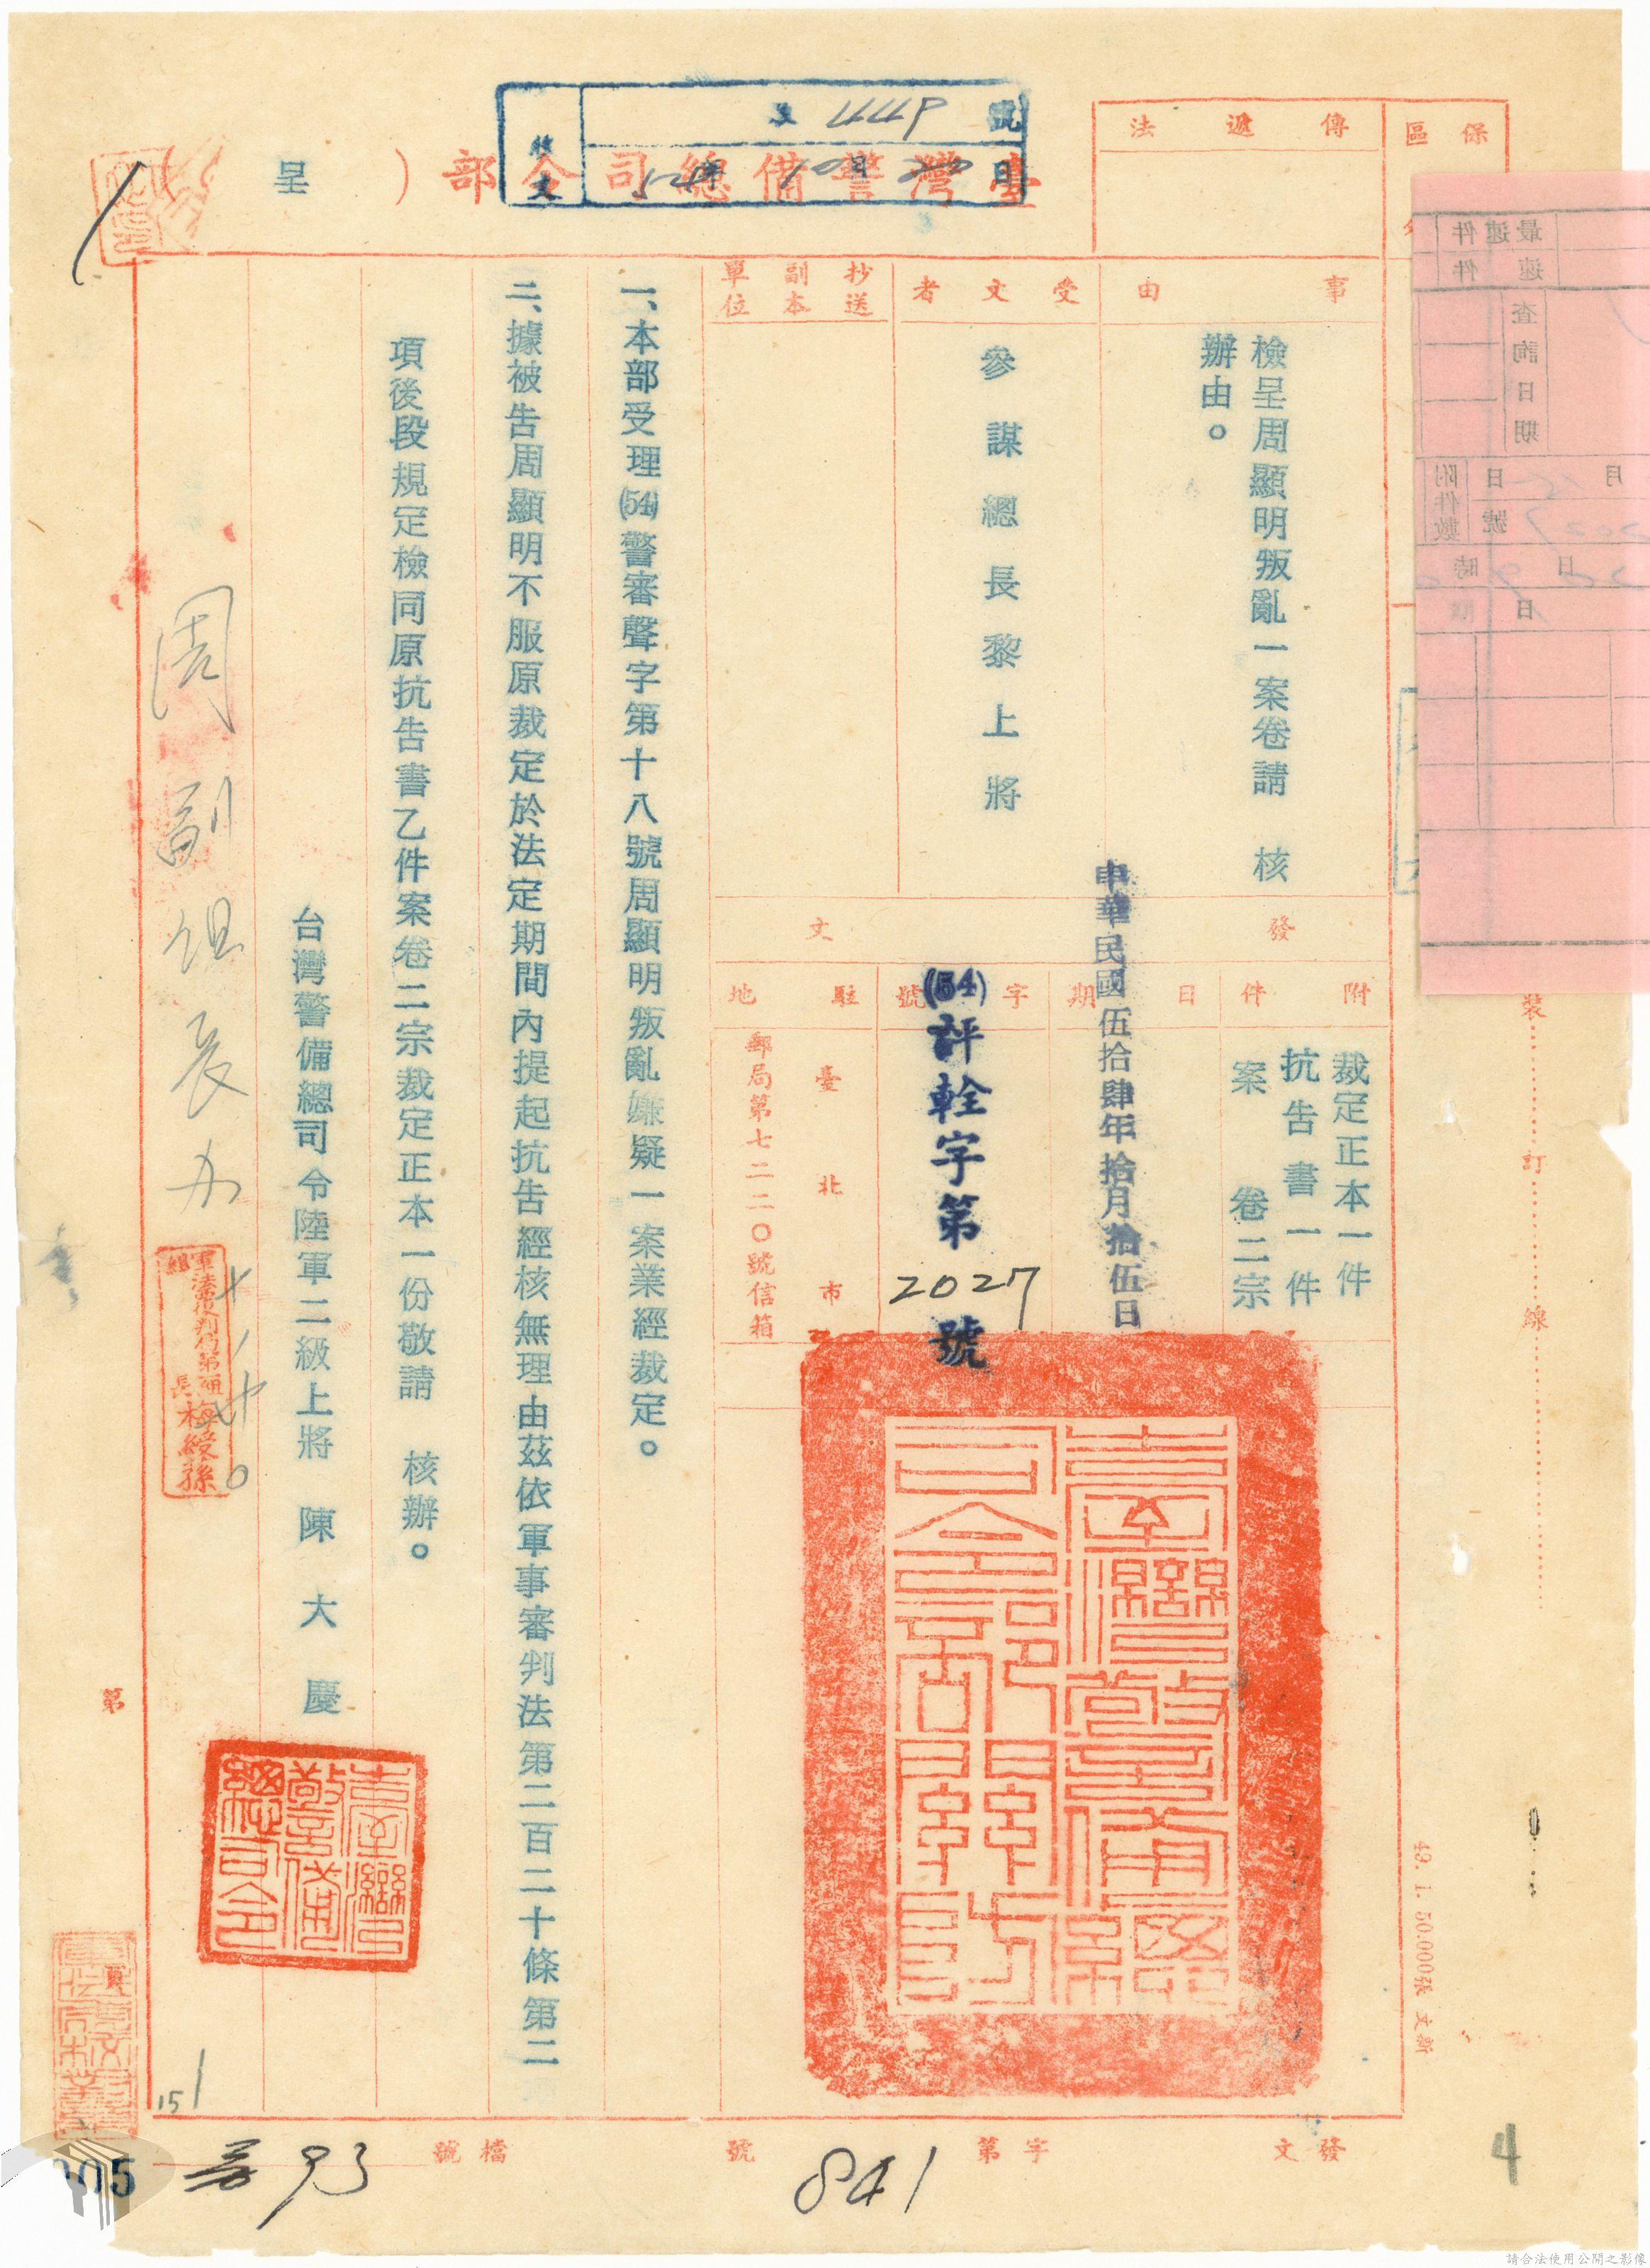 臺灣警備總司令部(呈)
收文
文 4449 號
54年10月20日
傳遞法
保
區
事由
檢呈周顯明叛亂一案卷請 核
辦由。
受文者
參謀總長黎上將
抄送
副本
單位
發文
附件
裁定正本一件
抗告書一件
案卷二宗
日期
中華民國伍拾肆年拾月拾伍日
字號
(54)評軨字第2027號
駐地
臺北市
郵局第七二二〇號信箱
一、本部受理(54)警審聲字第十八號周顯明叛亂嫌疑一案業經裁定。
二、據被告周顯明不服原裁定於法定期間內提起抗告經核無理由茲依軍事審判法第二百二十條第二
項後段規定檢同原抗告書乙件案卷二宗裁定正本一份敬請 核辦。
台灣警備總司令陸軍二級上將 陳大慶
臺灣警備總司令部關防
臺灣警備總司令
周副組長办
梅綬蓀
最速件
速件
查詢日期
附件數
月 日
號
日 時
裝
訂
線
49. 1. 50.000張 文新
第
頁
151
發文 字第 841 號
檔號
93
4
005
請合法使用公開之影像